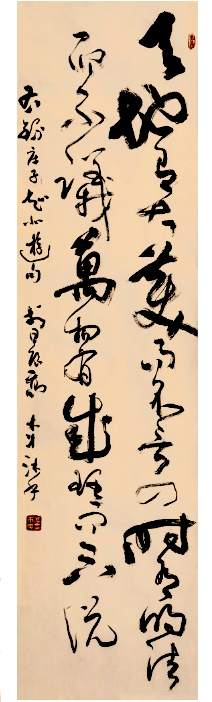 天地有大美而不言四时有明法
而不议万物有成理而不说
右录庄子知北游句